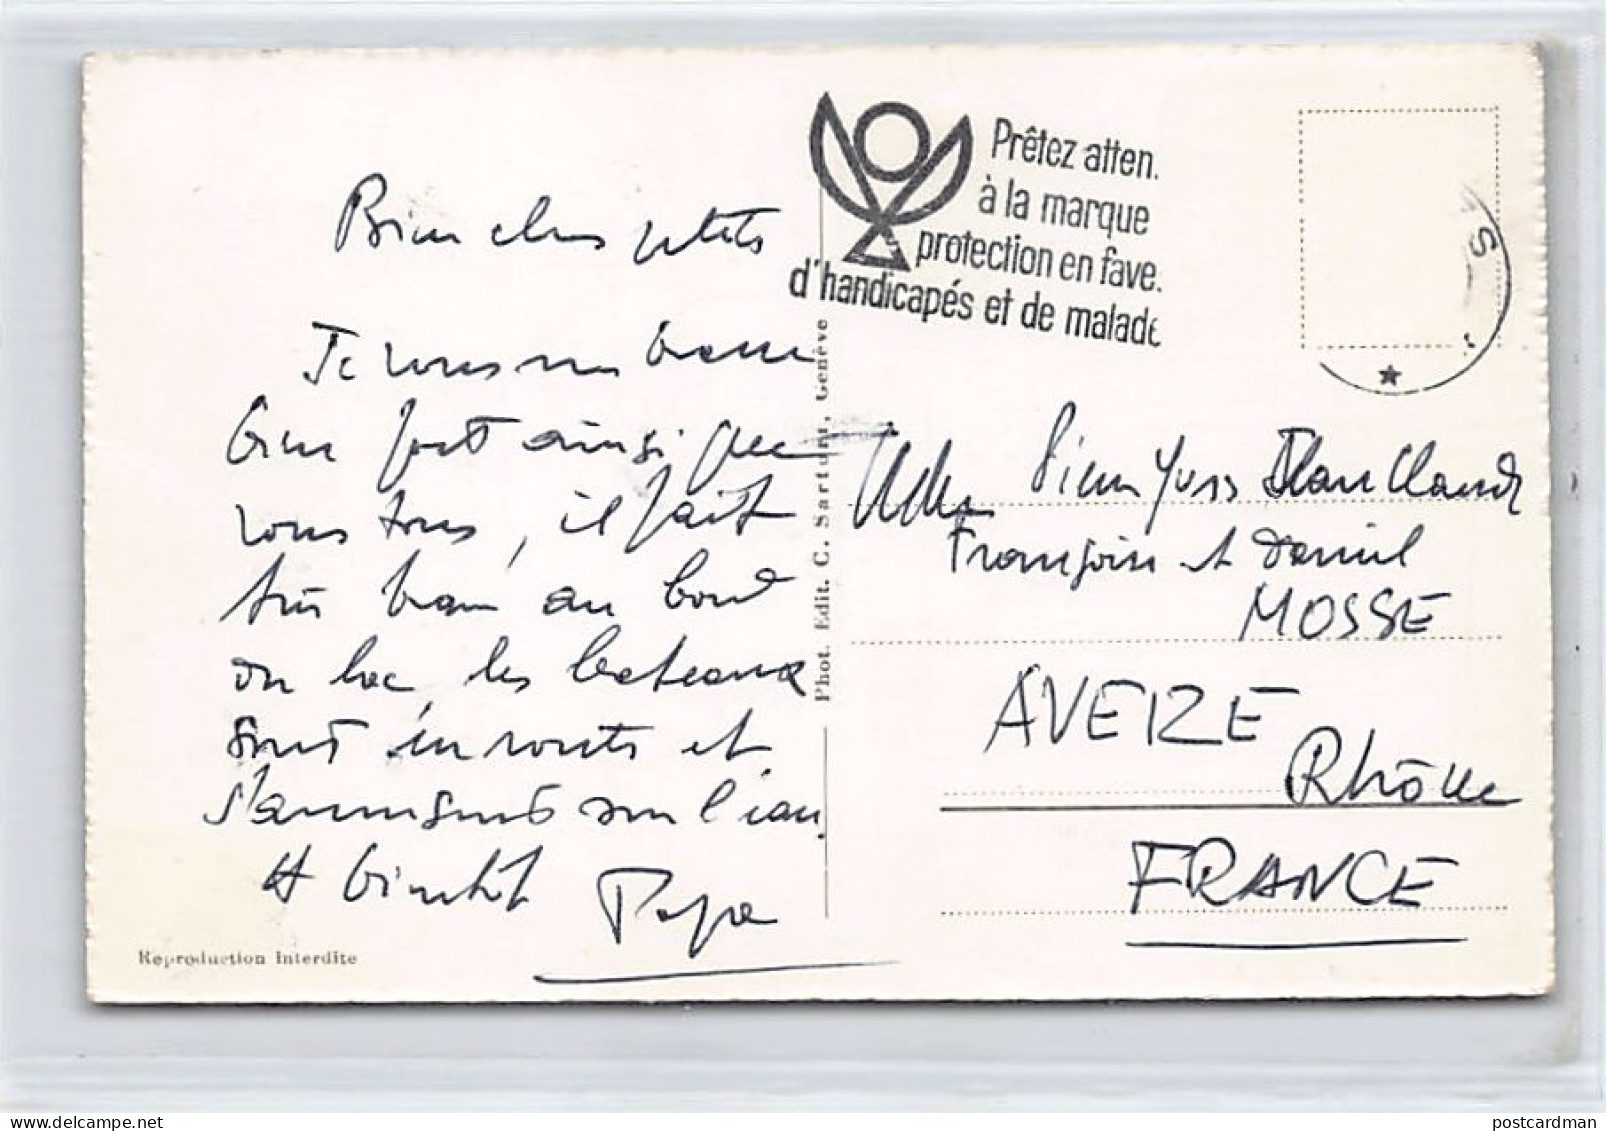 Bien chers petits
Je vous embrasse
bien fort ainsi que
vous tous, il fait
très beau au bord
du lac, les bateaux
sont en route et
s'amusent sur l'eau.
A bientôt
Papa
Reproduction Interdite
Phot. Edit. C. Sartori, Genève
Prêtez atten.
à la marque
protection en fave.
d'handicapés et de malade
Pierre Yves Jean Claude
Françoise et Daniel
MOSSE
AVEIZE
Rhône
FRANCE
postcardman